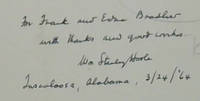 For Frank and Edna Bradler
with thanks and good works.
Wm Stanley Hoole
Tuscaloosa, Alabama, 3/24/'64